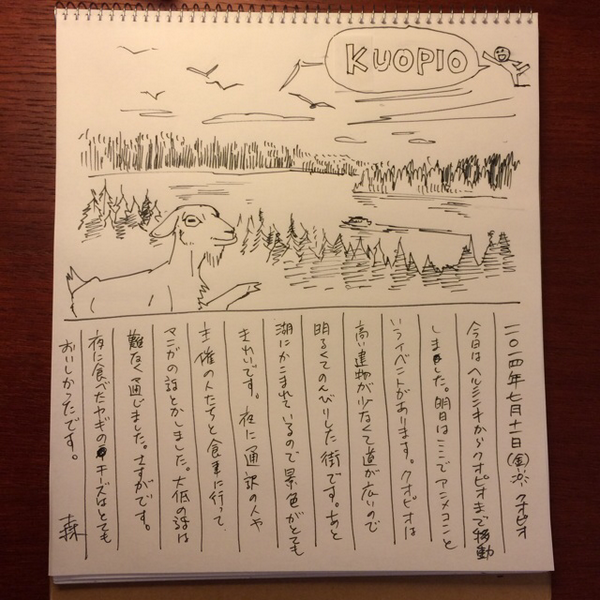 KUOPIO
二〇一四年七月十一日(金)クオピオ
今日はヘルシンキからクオピオまで移動
しました。明日はここでアニメコンと
いうイベントがあります。クオピオは
高い建物が少なくて道が広いので
明るくてのんびりした街です。あと
湖にかこまれているので景色がとても
きれいです。夜に通訳の人や
主催の人たちと食事に行って、
マンガの話とかしました。大体の話は
難なく通じました。さすがです。
夜に食べたヤギのチーズはとても
おいしかったです。
森